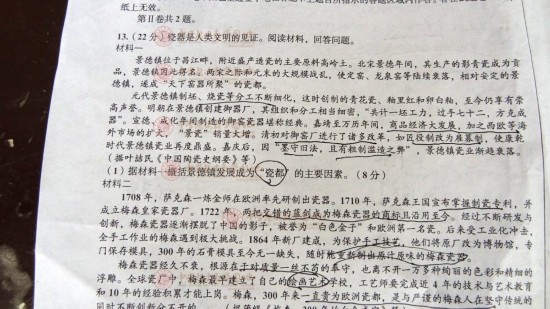 纸上无效。
第Ⅱ卷共2题。
13.(22分)瓷器是人类文明的见证。阅读材料，回答问题。
材料一
景德镇位于昌江畔，附近盛产造瓷的主要原料高岭土。北宋景德年间，其生产的影青瓷成为贡
品，景德镇因此得名。两宋之际和元末的大规模战乱，使定窑、龙泉窑等陆续衰落，相对安定的景
德镇，遂成“天下窑器所聚”的瓷都。
元代景德镇制坯、烧瓷等分工不断细化，这时创制的青花瓷、釉里红和卵白釉，至今仍享有崇
高声誉。明朝在景德镇创建御器厂，其组织和分工相当细密，“共计一坯工力，过手七十二，方克成
器”。宣德、成化年间制造的御窑瓷器堪称经典。嘉靖至万历年间，商品经济大发展，加之西欧等海
外市场的扩大，“景瓷”销量大增。清初对御窑厂进行了诸多改革，如匠役制改为雇募制，使康乾
时代景德镇瓷业再度鼎盛。嘉庆后，因“墨守旧法，且有粗制滥造之弊”，景德镇瓷业渐趋衰落。
(据叶喆民《中国陶瓷史纲要》等)
(1)据材料一概括景德镇发展成为“瓷都”的主要因素。(8分)
材料二
1708年，萨克森一炼金师在欧洲率先研制出瓷器。1710年，萨克森王国宣布掌握制瓷专利，并
成立梅森皇家瓷器厂。1722年，两把交错的蓝剑成为梅森瓷器的商标且沿用至今。经过不断研发与
创新，梅森瓷器逐渐摆脱了中国的影子，被誉为“白色金子”和欧洲第一名瓷。后来受工业化冲击，
全手工作业的梅森遇到极大挑战。1864年新厂建成，为保护手工技艺，他们将原厂改为博物馆，专
门保存模具，300年的石膏模具至今无一缺失，随时能重新制出原汁原味的梅森瓷器。
梅森瓷器经久不衰，根源在于对质量一丝不苟的恪守，也离不开一万多种绚丽的色彩和精细的
浮雕。全球瓷厂中，梅森最早建立了自己的绘画艺术学校，工艺师要完成近4年的技术与艺术教育
和10年的经验积累才能上岗。梅森，300年来一直贵为欧洲瓷都，是与严谨的梅森人在坚守传统的